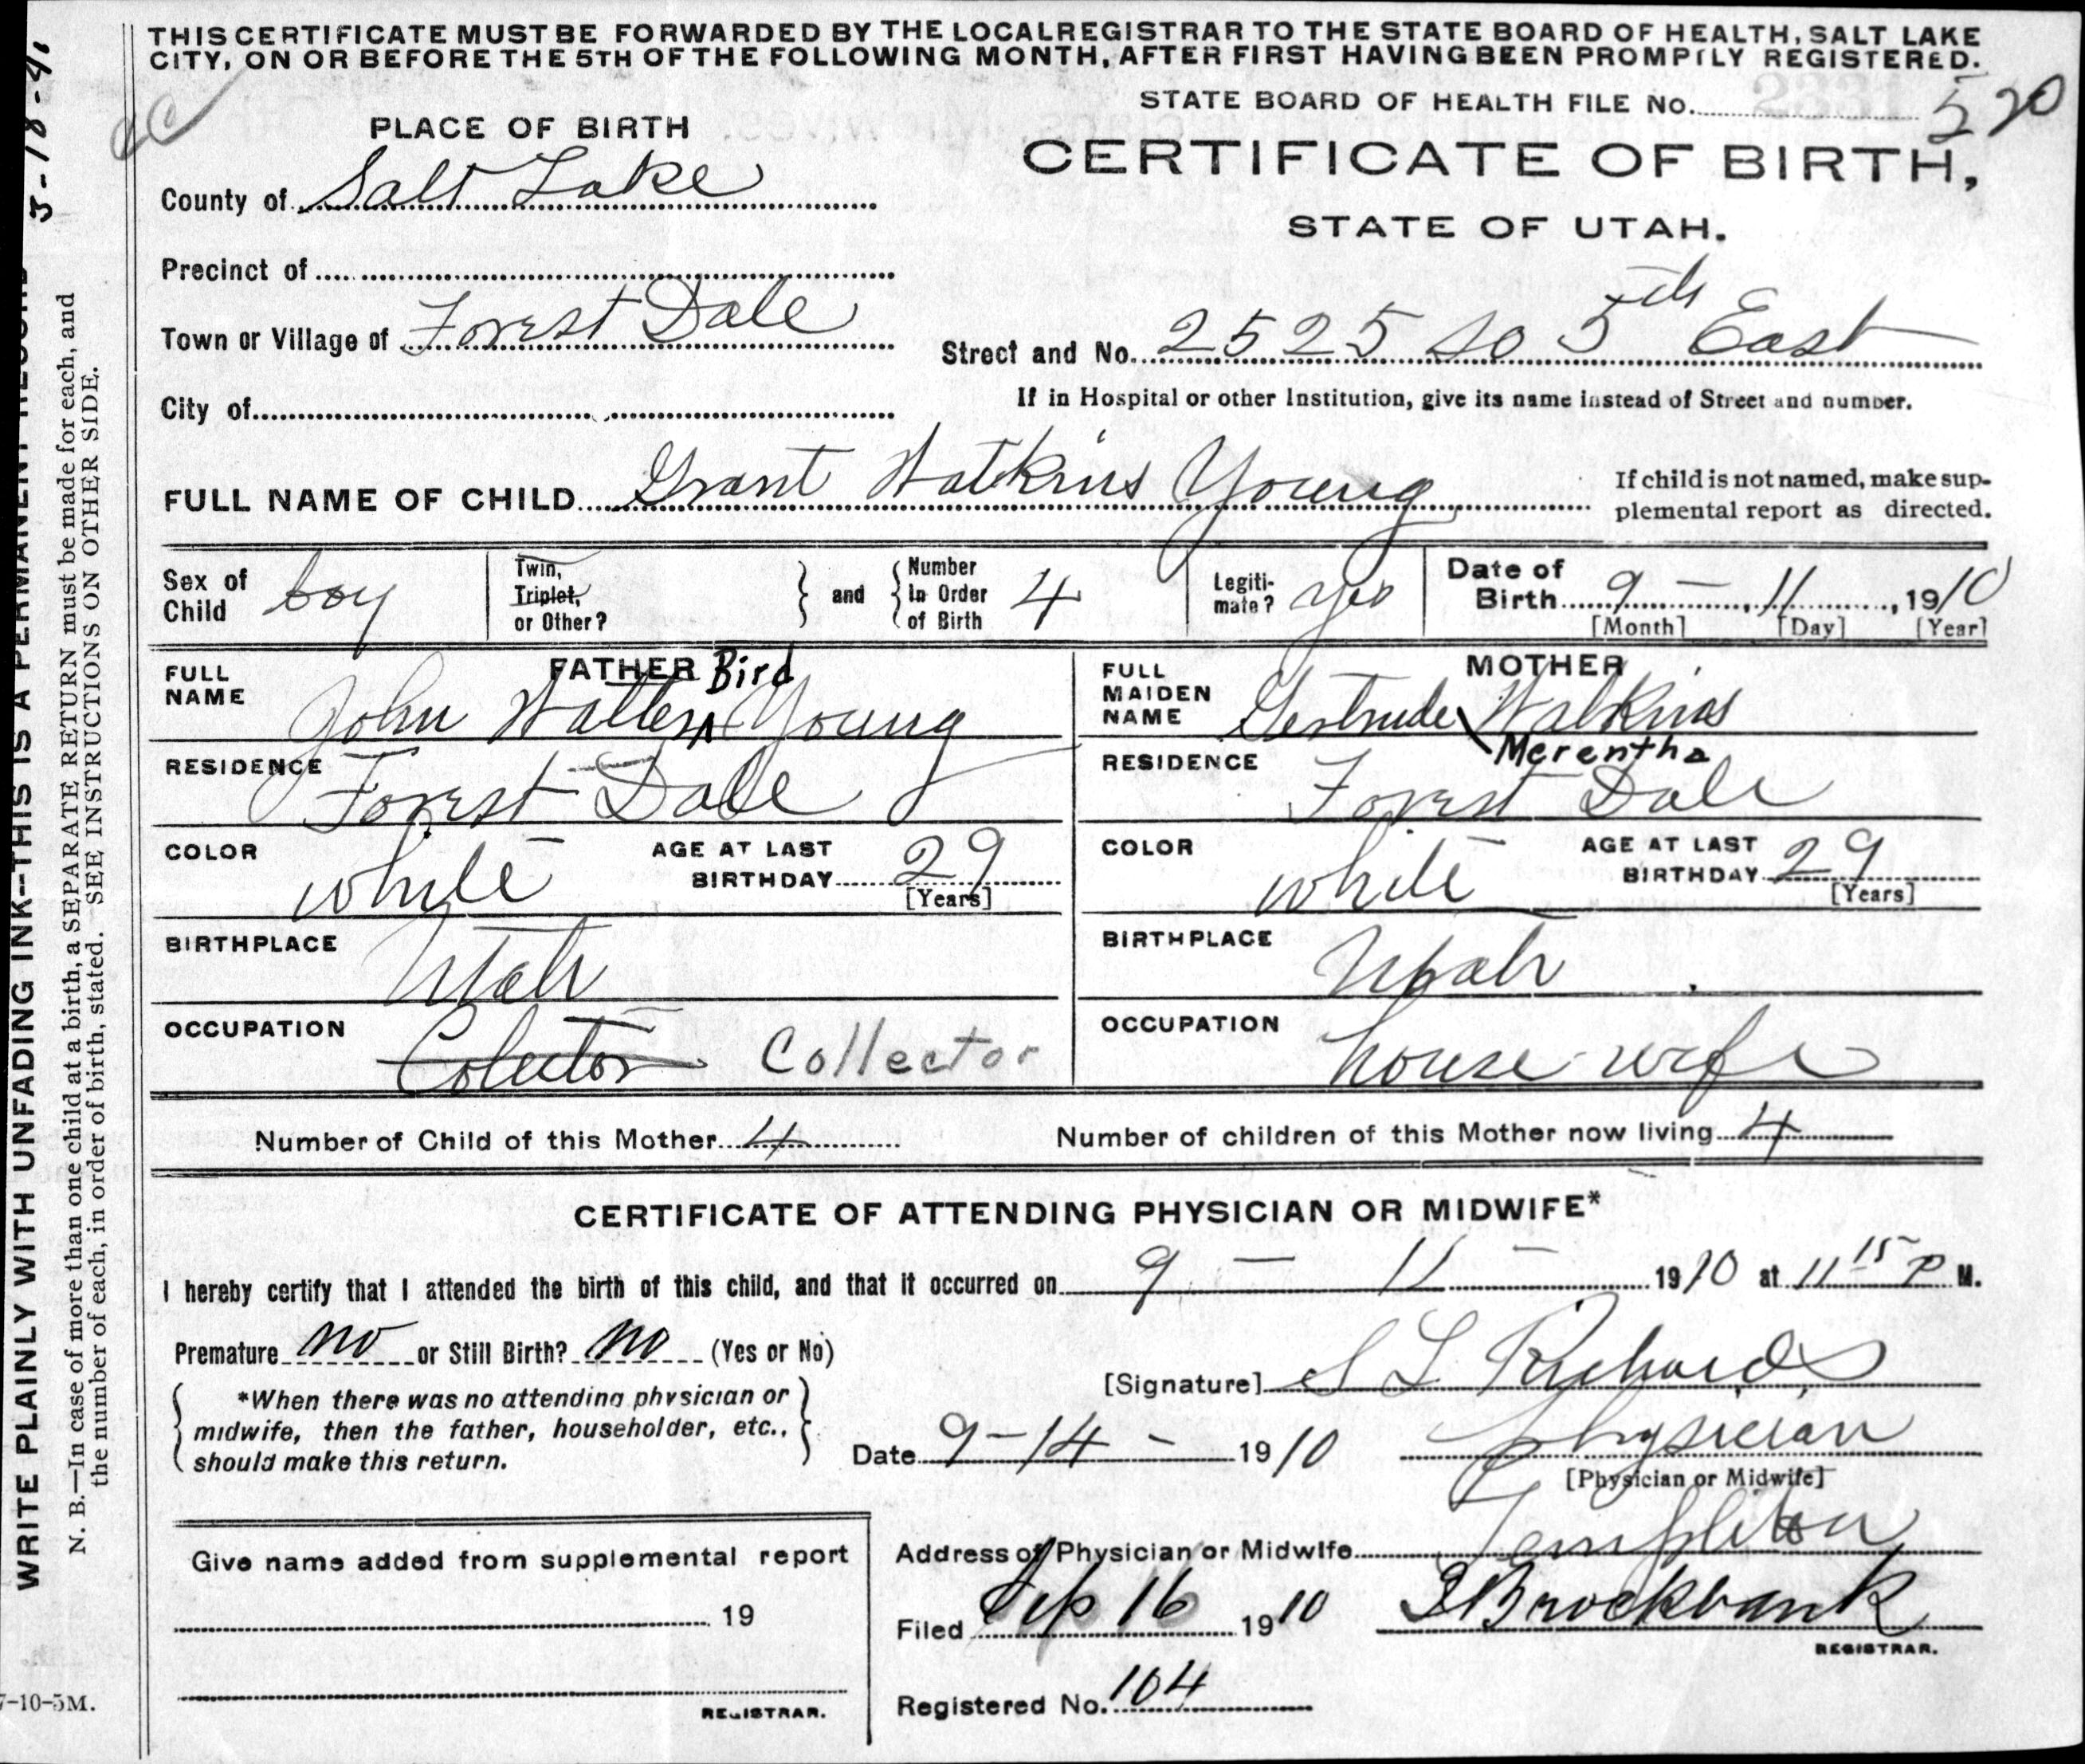 THIS CERTIFICATE MUST BE FORWARDED BY THE LOCAL REGISTRAR TO THE STATE BOARD OF HEALTH, SALT LAKE
CITY, ON OR BEFORE THE 5TH OF THE FOLLOWING MONTH, AFTER FIRST HAVING BEEN PROMPTLY REGISTERED.
STATE BOARD OF HEALTH FILE No. 520
PLACE OF BIRTH
CERTIFICATE OF BIRTH,
STATE OF UTAH.
County of Salt Lake
Precinct of
Town or Village of Forest Dale
Street and No. 2525 So 5th East
City of
If in Hospital or other Institution, give its name instead of Street and number.
FULL NAME OF CHILD Grant Watkins Young
If child is not named, make sup-
plemental report as directed.
Sex of Child boy
Twin, Triplet, or Other?
and
Number in Order of Birth 4
Legiti-mate? yes
Date of Birth 9 - 11, 1910
[Month] [Day] [Year]
FATHER
FULL NAME John Walter Bird Young
RESIDENCE Forest Dale
COLOR white
AGE AT LAST BIRTHDAY 29
[Years]
BIRTHPLACE Utah
OCCUPATION Colector Collector
MOTHER
FULL MAIDEN NAME Gertrude Merentha Watkins
RESIDENCE Forest Dale
COLOR white
AGE AT LAST BIRTHDAY 29
[Years]
BIRTHPLACE Utah
OCCUPATION house wife
Number of Child of this Mother 4
Number of children of this Mother now living 4
CERTIFICATE OF ATTENDING PHYSICIAN OR MIDWIFE*
I hereby certify that I attended the birth of this child, and that it occurred on 9 - 11 - 1910 at 11 15 P M.
Premature no or Still Birth? no (Yes or No)
*When there was no attending physician or
midwife, then the father, householder, etc.,
should make this return.
[Signature] S L Richards
Date 9-14-1910
Physician
[Physician or Midwife]
Address of Physician or Midwife Templeton
Filed Sep 16 1910
Brockbank
REGISTRAR.
Registered No. 104
Give name added from supplemental report
19
REGISTRAR.
WRITE PLAINLY WITH UNFADING INK--THIS IS A PERMANENT RECORD
N. B.—In case of more than one child at a birth, a SEPARATE RETURN must be made for each, and
the number of each, in order of birth, stated. SEE INSTRUCTIONS ON OTHER SIDE.
7-10-5M.